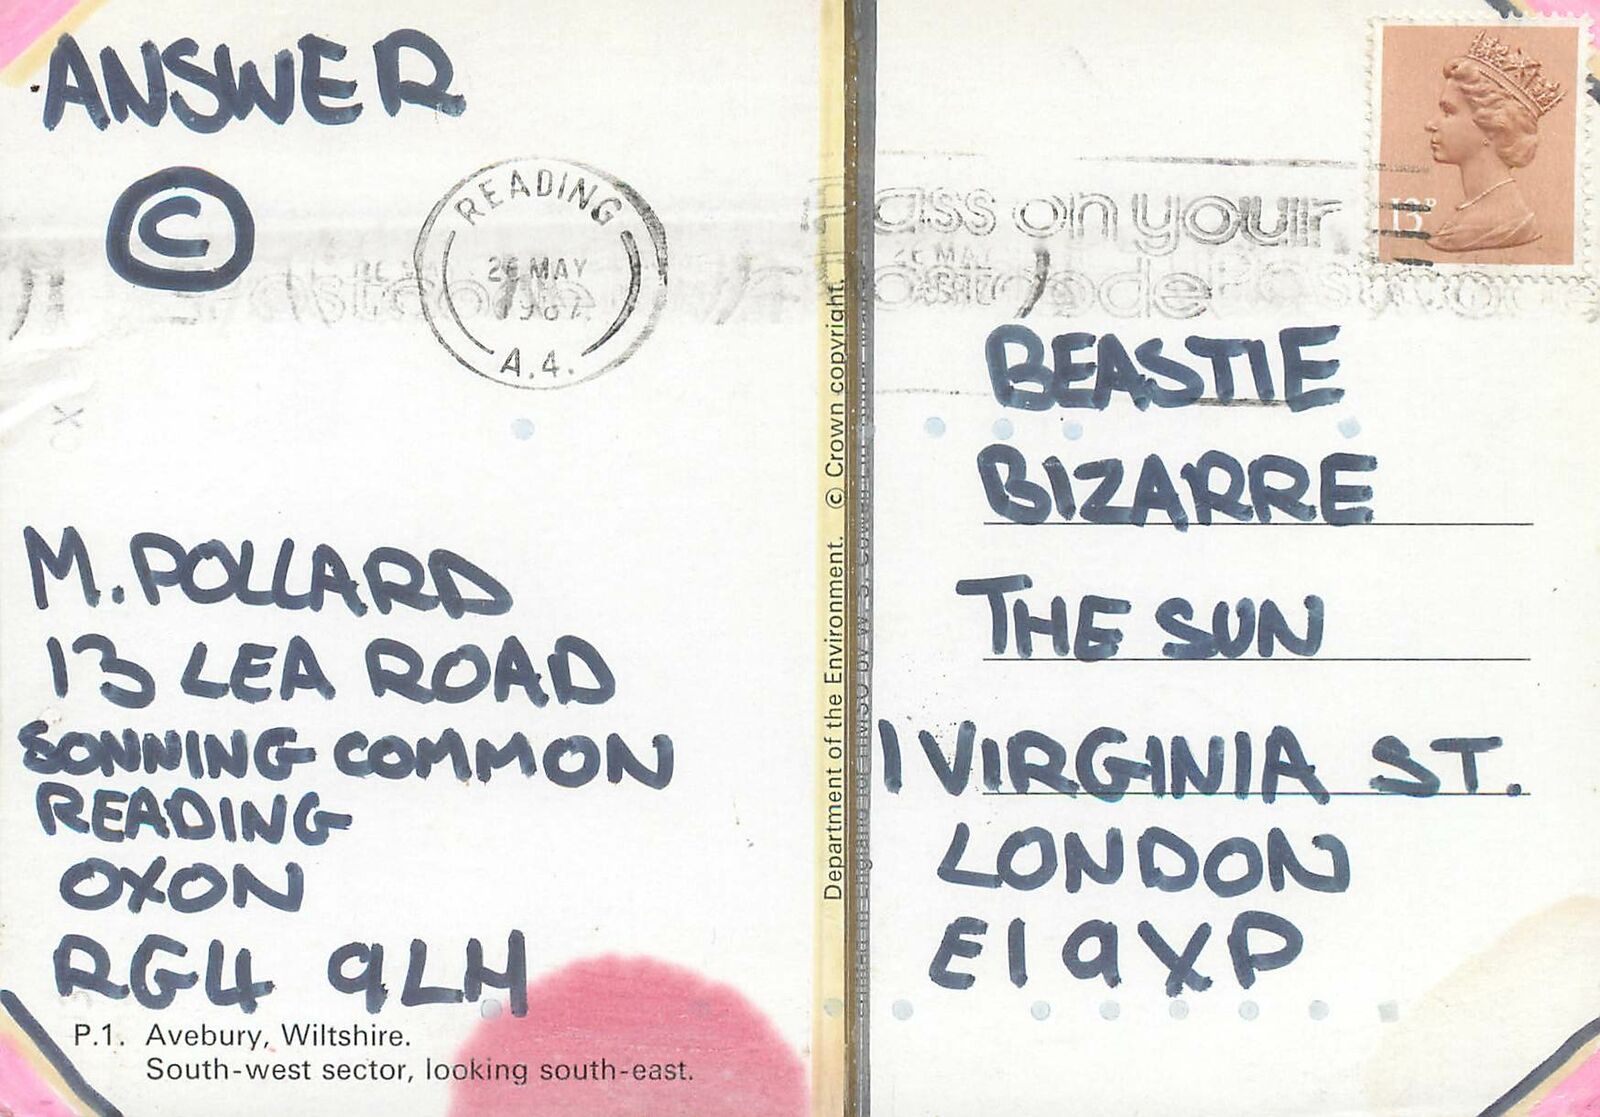 ANSWER
©
READING
26 MAY
1987
A.4.
M. POLLARD
13 LEA ROAD
SONNING COMMON
READING
OXON
RG4 9LH
P.1. Avebury, Wiltshire.
South-west sector, looking south-east.
Department of the Environment. © Crown copyright.
on your
13P
BEASTIE
BIZARRE
THE SUN
1 VIRGINIA ST.
LONDON
E1 9XP